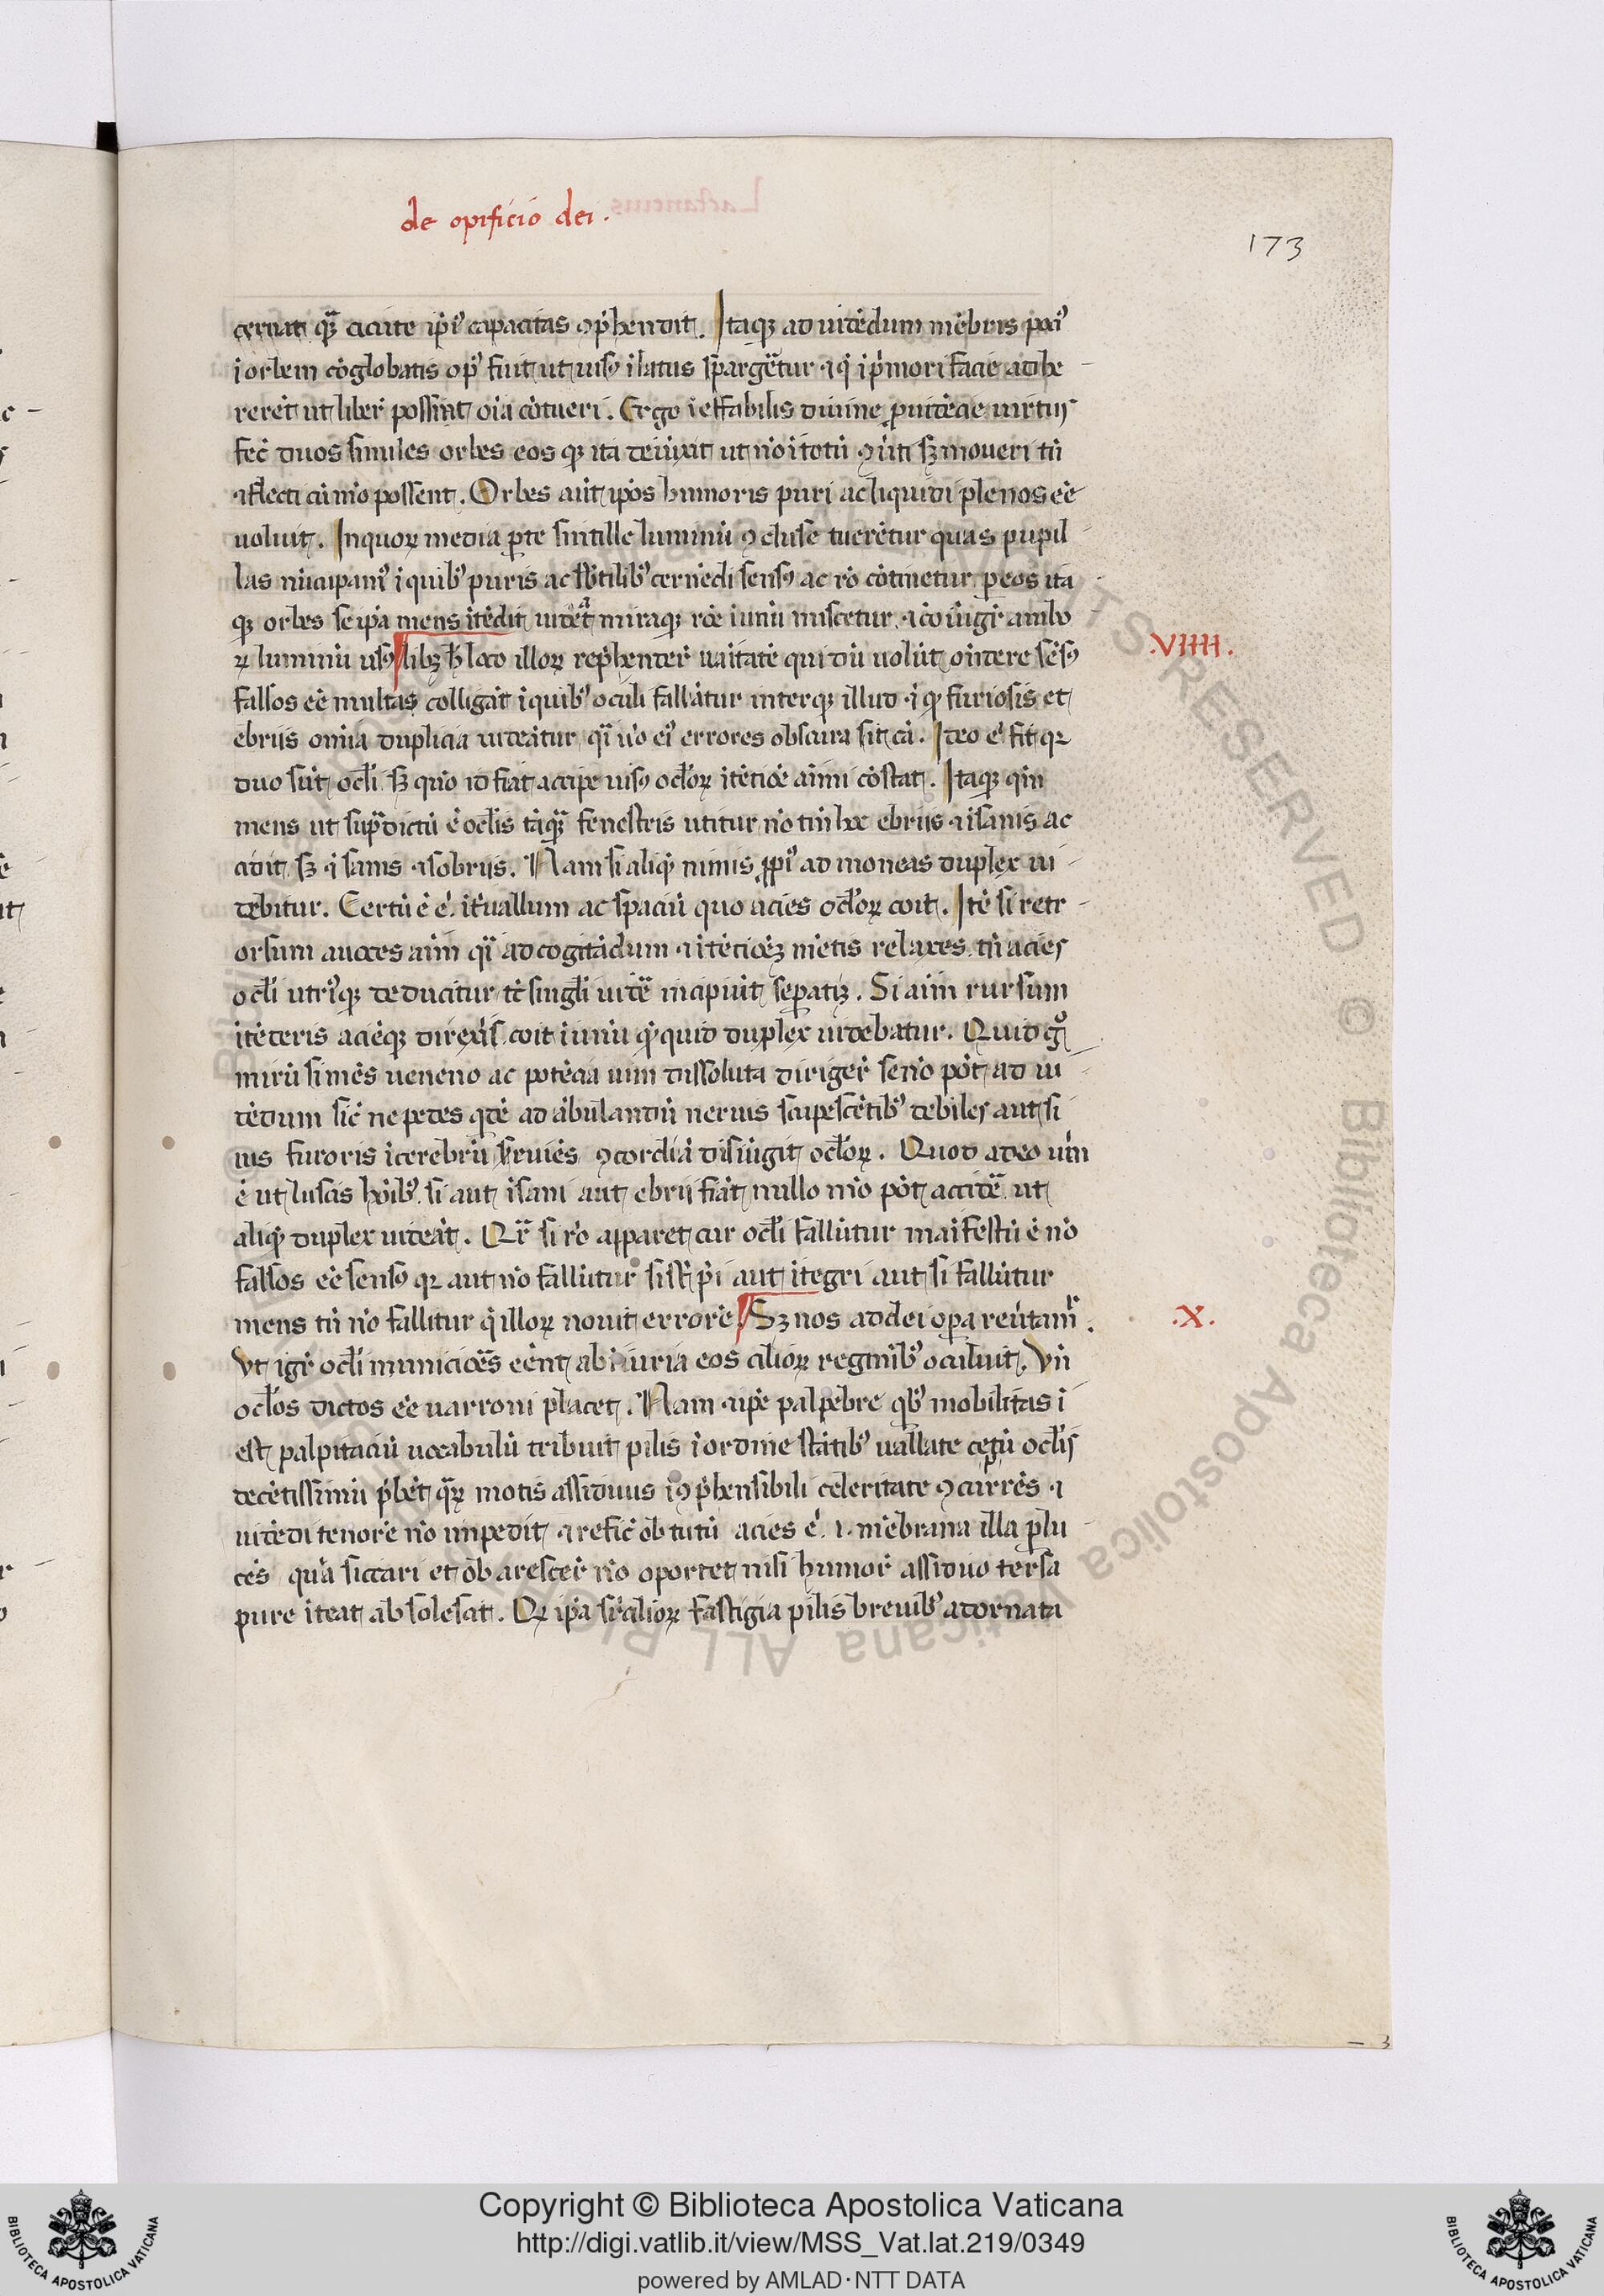 de opificio dei.
173
cernat quā acuite ip̄iꝰ capacitas ꝯp̄hendit. Itaqꝫ ad uidēdum mēbris paciꝰ
ī orbem cōglobatis opꝰ fuit ut uisꝰ ī latus sp̄argēt̄ur ⁊ q̄ ī p̄mori facie adhe
rerēt ut liber̄ possint oīa cōtueri. Ergo ī effabilis diuine ꝓuidēcie uirtus
fec̄ duos similes orbes eos qꝫ ita deiūxit ut nō ī totū ꝯūti sꝫ moueri tn̄
⁊ flecti cū mō possent. Orbes aūt ip̄os humoris puri ac liquidi plenos eē
uoluit. In quoꝝ media ꝑte sintille luminū ꝯcluse tuerētur quas pupil
las nūcupamꝰ ī quibꝰ puris ac sb̄tilibꝰ cernēdi sensꝰ ac rō cōtinetur. ꝑ eos ita
qꝫ orbes se ip̄a mens ītēdit ut uidet̄ miraqꝫ rōe ī unū miscetur ⁊ cōiūgir̄ ambo
ꝝ luminū usꝰ libꝫ h̄ loco illoꝝ rep̄henderē uaītatē qui dū uolūt on̄dere sēsꝰ
.VIIII.
falsos eē multas colligāt ī quibꝰ oculi fallātur interqꝫ illud ⁊ qꝫ furiosis et
ebriis omīa duplicia uideātur qī nō eiꝰ errores obscura sit cā. Ideo ē fit qꝛ
duo sūt oclī sꝫ quō id fiat accipe uisꝰ ocloꝝ ītēciōe aīmi cōstat. Itaqꝫ qm̄
mens ut supradictū ē oclis tāqꝫ fenestris utitur nō tm̄ hoc ebriis ⁊ īsanis ac
cidit sꝫ ⁊ sanis ⁊ sobriis. Nam si aliqd̄ nimis ꝓpiꝰ ad moneas duplex ui
debitur. Certū ē ē. it̄uallum ac spaciū quo acies ocloꝝ coit. Itē si retr
orsum auoces aīm qī ad cogitādum ⁊ ītēcioēꝫ mētis relaxes. tū acies
oclī utriꝰqꝫ deducitur tc̄ singli uidē incipiūt seperatī. Si aīm rursum
ītēderis aciēqꝫ direxīs coit ī unū qd̄quid duplex uidebatur. Quid gͦ
mirū si mēs ueneno ac potēcia uini dissoluta diriger̄ se nō pōt ad ui
dēdum sic̄ nepedes qdē ad ābulandū neruis stupescētibꝰ debiles aut si
uis furoris ī cerebrū seruiēs ꝯcordiā disiūgit ocloꝝ. Quod adeo uēm
ē ut luscis hōibꝰ si aut īsani aut ebrii fiāt nullo mō pōt accidē ut
aliqd̄ duplex uideāt. Qr̄ si rō apparet cur oclī fallūtur maīfestū ē nō
falsos eē sensꝰ qꝛ aut nō fallūtur si st̄ pi aut ītegri aut si fallūtur
mens tn̄ nō fallitur q̄ illoꝝ nouit errorē. Sꝫ nos ad dei opera reūtamꝰ.
.X.
Vt igr̄ oclī municiōes eēnt ab īiuria eos cilioꝝ tegmībꝰ oculuit. Vn̄
oclos dictos eē uarroni placet. Nam ⁊ ip̄e palpebre qbꝰ mobilitas ī
est palpitaciū uocabulū tribuit pilis ī ordine stātibꝰ uallate ceptū oclis
decētissimū p̄bēt qꝝ motis assiduus īꝯp̄hensibili celeritate ꝯcurrēs ⁊
uidēdi tenorē nō impedit ⁊ refic̄ ob tutū acies ē. ⁊. mēbrana illa ꝑlu
cēs quā siccari et ob arescer̄ nō oportet nisi humor̄ assiduo tersa
pure iteat ab solesat. Qꝛ ip̄a sr̄ cilioꝝ fastigia pilis breuibꝰ adornata
3
Copyright © Biblioteca Apostolica Vaticana
http://digi.vatlib.it/view/MSS_Vat.lat.219/0349
powered by AMLAD·NTT DATA
BIBLIOTECA APOSTOLICA VATICANA
BIBLIOTECA APOSTOLICA VATICANA